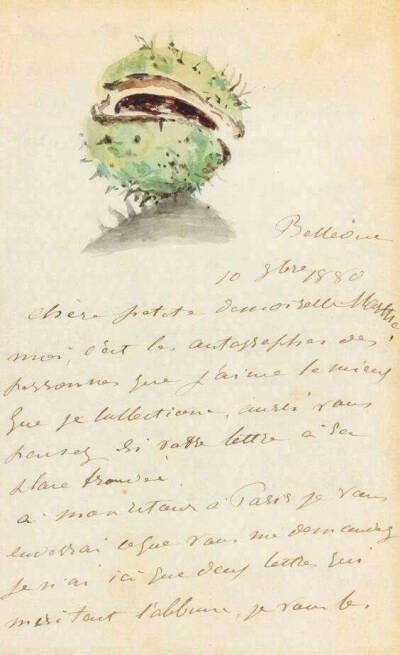 Bellevue
10 9bre 1880
chère petite demoiselle Marthe
moi, c'est les autographes des
personnes que j'aime le mieux
que je collectionne, aussi vous
pensez si votre lettre a sa
place trouvée.
à mon retour à Paris je vous
enverrai ce que vous me demandez
je n'ai ici que deux lettres qui
méritent l'album, je vous les